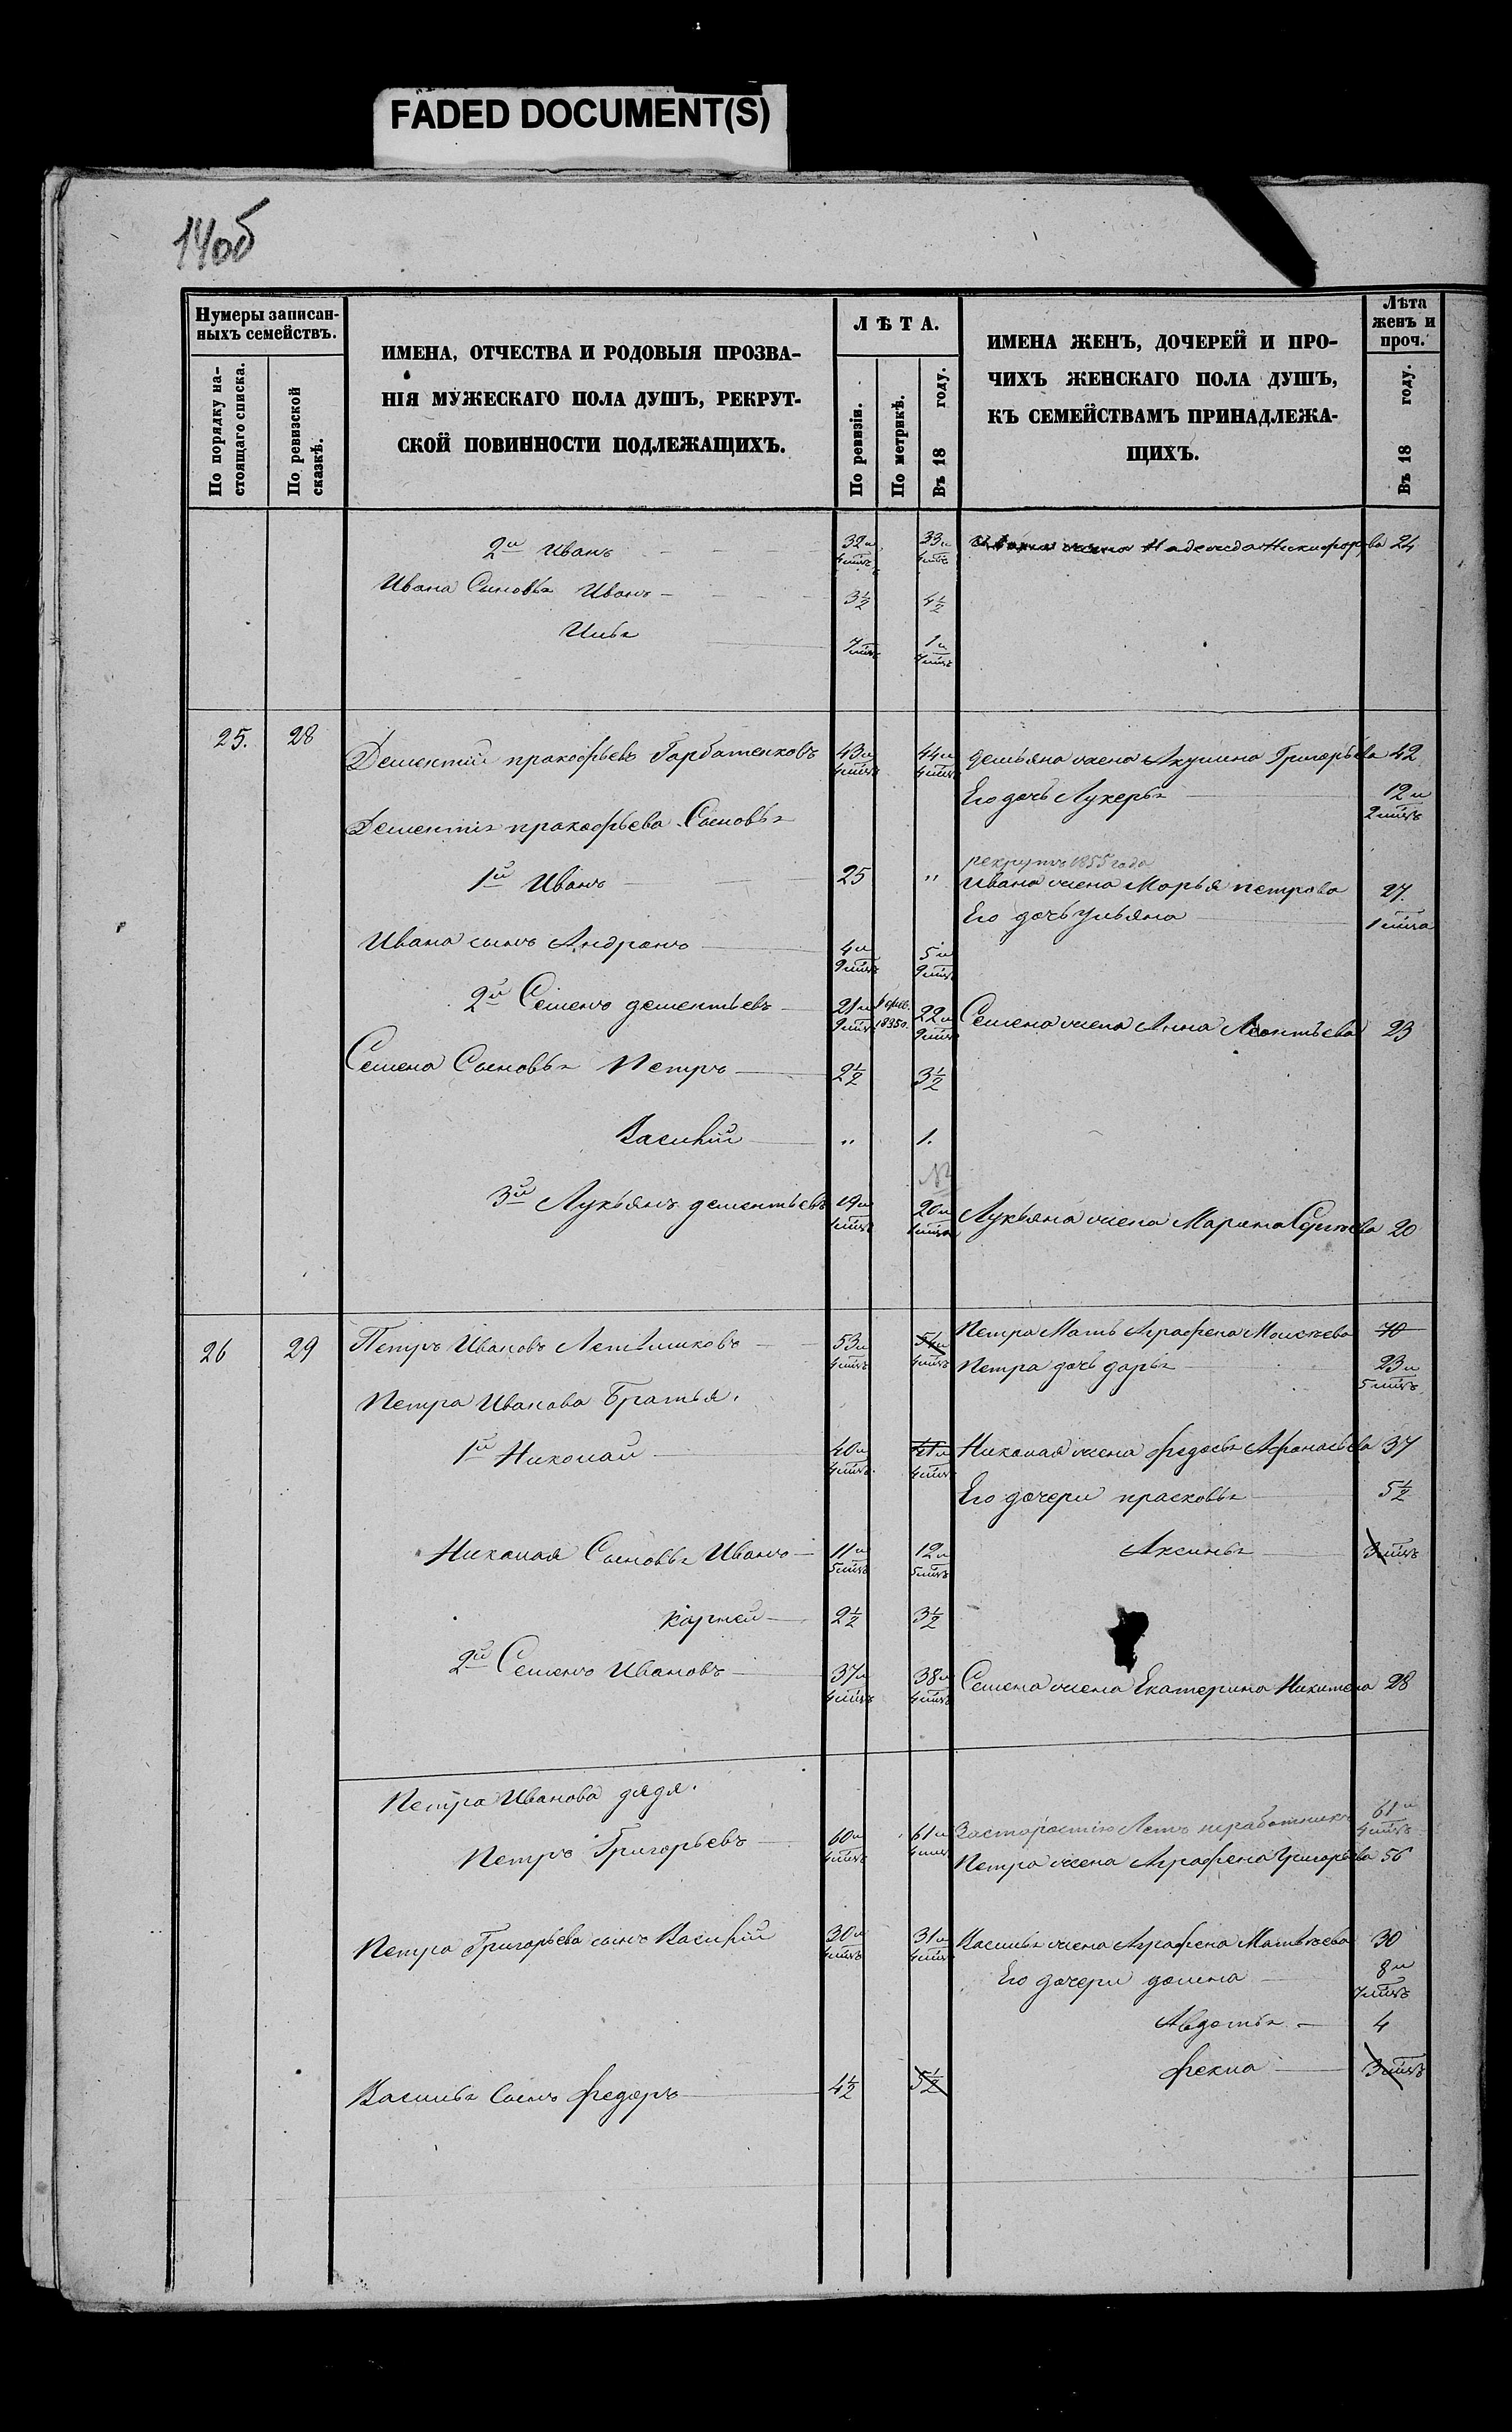 FADED DOCUMENT(S)
14об
Нумеры записан-
ныхъ семействъ.
По порядку на-
стоящаго списка.
По ревизской
сказкѣ.
ИМЕНА, ОТЧЕСТВА И РОДОВЫЯ ПРОЗВА-
НІЯ МУЖЕСКАГО ПОЛА ДУШЪ, РЕКРУТ-
СКОЙ ПОВИННОСТИ ПОДЛЕЖАЩИХЪ.
ЛѢТА.
По ревизіи.
По метрикѣ.
Въ 18 году.
ИМЕНА ЖЕНЪ, ДОЧЕРЕЙ И ПРО-
ЧИХЪ ЖЕНСКАГО ПОЛА ДУШЪ,
КЪ СЕМЕЙСТВАМЪ ПРИНАДЛЕЖА-
ЩИХЪ.
Лѣта
женъ и
проч.
Въ 18 году.
2й Иванъ 32и 4мцъ 33и 4мцъ Надежда Никифорова 24
Ивана Сыновья Иванъ 3½ 4½
Илья 7мцъ 1и 7мцъ
25. 28 Дементий прокофьевъ Гарбатенковъ 43и 4мцъ 44и 4мцъ жена Акулина Григорьева 42
Его дочь Лукерья 12и 2мцъ
Дементия прокофьева Сыновья
рекрутъ 1855 года
1й Иванъ 25 " Ивана жена Марья петрова 27.
Его дочь Ульяна 1мца
Ивана сынъ Андранъ 4и 9мцъ 5и 9мцъ
2й Семенъ дементьевъ 21и 9мцъ 1835г. 22и 9мцъ Семена жена Анна Леонтьева 23
Семена Сыновья Петръ 2½ 3½
Василий " 1.
3й Лукьянъ дементьевъ 19и 1мцъ 20и 1мца Лукьяна жена Марина Сергѣева 20
26 29 Петръ Ивановъ 53и 4мцъ 54и 4мцъ Петра Мать Аграфена Моисѣева 70
Петра дочь дарья 23и 5мцъ
Петра Иванова Братья.
1й Николай 40и 4мцъ 41и 4мцъ Николая жена Федосья Афанасьева 37
Его дочери прасковья 5½
Николая Сыновья Иванъ 11и 5мцъ 12и 5мцъ Аксинья 3мцъ
Карней 2½ 3½
2й Семенъ Ивановъ 37и 4мцъ 38и 4мцъ Семена жена Екатерина Никитена 28
Петра Иванова дядя.
Петръ Григорьевъ 60и 4мцъ 61и 4мцъ За старостію Летъ неработникъ 61и 4мцъ
Петра жена Аграфена Григорьева 56
Петра Григорьева сынъ Василий 30и 4мцъ 31и 4мцъ Василья жена Аграфена Матвѣева 30
Его дочери домна 8и 7мцъ
Авдотья 4
Фекла 3мцъ
Василья Сынъ Федоръ 4½ 5½